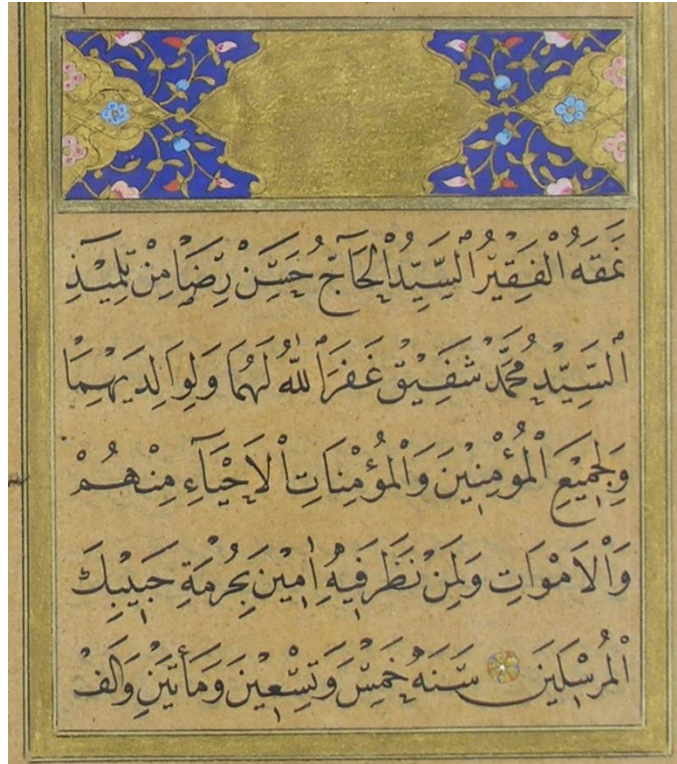 نَمَقَهُ الْفَقِيْرُ السَّيِّدُ الْحَآجّ حُسَيْنْ رِضَا مِنْ تِلْمِيْذِ
السَّيِّدْ مُحَمَّدْ شَفِيْقْ غَفَرَ اللّٰهُ لَهُمَا وَلِوَالِدَيْهِمَا
وَلِجَمِيْعِ الْمُؤْمِنِيْنَ وَالْمُؤْمِنَاتِ الْاَحْيَآءِ مِنْهُمْ
وَالْاَمْوَاتِ وَلِمَنْ نَظَرَ فِيْهِ اٰمِيْنَ بِحُرْمَةِ حَبِيْبِكَ
الْمُرْسَلِيْنَ سَنَهُ خَمِسْ وَتِسْعِيْنَ وَمَأتَيْنِ وَالَفْ